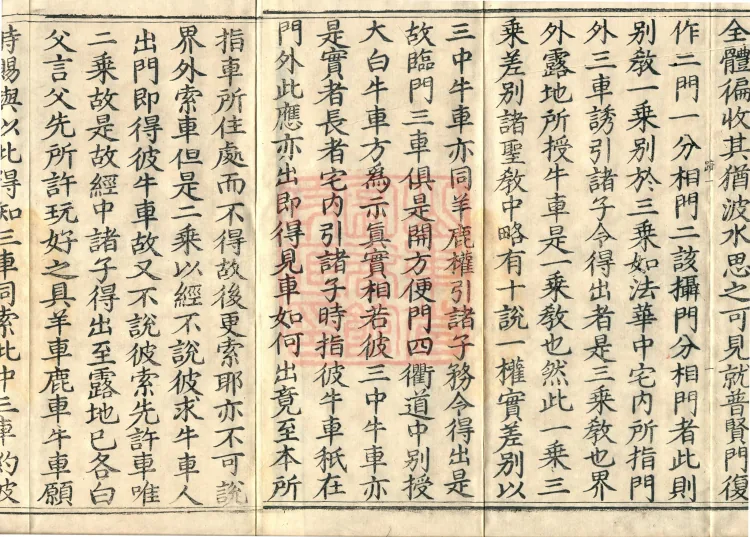 全體徧收其猶波水思之可見就普賢門復
作二門一分相門二該攝門分相門者此則
別教一乘別於三乘如法華中宅內所指門
外三車誘引諸子令得出者是三乘教也界
外露地所授牛車是一乘教也然此一乘三
乘差別諸聖教中略有十說一權實差別以
三中牛車亦同羊鹿權引諸子務令得出是
故臨門三車俱是開方便門四衢道中別授
大白牛車方為示真實相若彼三中牛車亦
是實者長者宅內引諸子時指彼牛車秖在
門外此應亦出即得見車如何出竟至本所
指車所住處而不得故後更索耶亦不可說
界外索車但是二乘以經不說彼求牛車人
出門即得彼牛車故又不說彼索先許車唯
二乘故是故經中諸子得出至露地已各白
父言父先所許玩好之具羊車鹿車牛車願
時賜與以此得知三車同索此中三車約彼